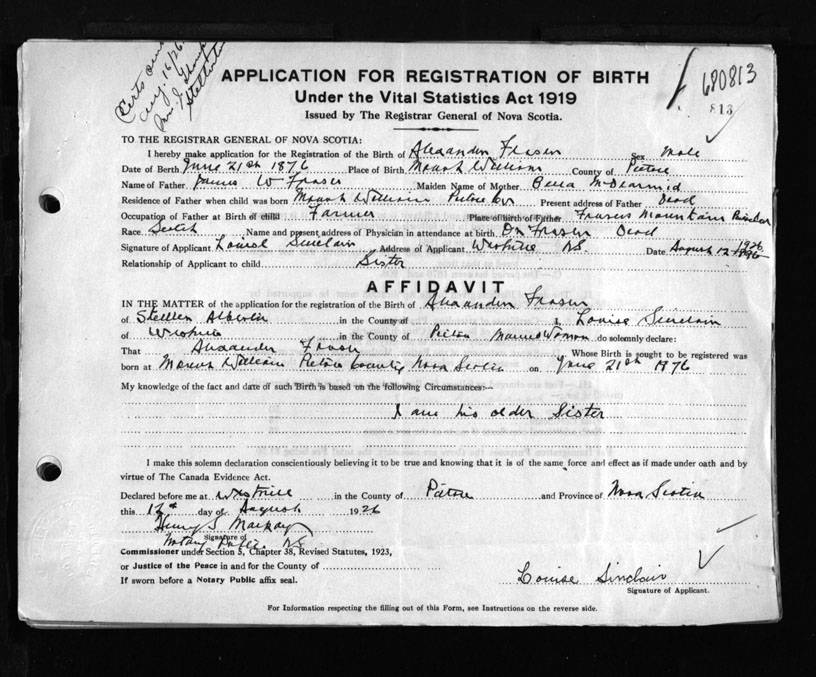 Certs
Aug. 16/26
680813
813
APPLICATION FOR REGISTRATION OF BIRTH
Under the Vital Statistics Act 1919
Issued by The Registrar General of Nova Scotia.
TO THE REGISTRAR GENERAL OF NOVA SCOTIA:
I hereby make application for the Registration of the Birth of Alexander Fraser Sex Male
Date of Birth June 21st 1876 Place of Birth Mount William County of Pictou
Name of Father James W Fraser Maiden Name of Mother Bella McDearmid
Residence of Father when child was born Mount William Pictou Co Present address of Father Dead
Occupation of Father at Birth of child Farmer Place of birth of Father Frasers Mountain Pictou Co
Race Scotch Name and present address of Physician in attendance at birth Dr Fraser Dead
Signature of Applicant Louise Sinclair Address of Applicant Westville NS Date August 12 1926
Relationship of Applicant to child Sister
AFFIDAVIT
IN THE MATTER of the application for the registration of the Birth of Alexander Fraser
of Stettler Alberta in the County of I, Louise Sinclair
of Westville in the County of Pictou Married Woman do solemnly declare:
That Alexander Fraser Whose Birth is sought to be registered was
born at Mount William Pictou County Nova Scotia on June 21st 1876
My knowledge of the fact and date of such Birth is based on the following Circumstances:—
I am his older Sister
I make this solemn declaration conscientiously believing it to be true and knowing that it is of the same force and effect as if made under oath and by
virtue of The Canada Evidence Act.
Declared before me at Westville in the County of Pictou and Province of Nova Scotia
this 12th day of August 1926
Henry S Mackay
Signature of
Notary Public NS
Commissioner under Section 5, Chapter 38, Revised Statutes, 1923,
or Justice of the Peace in and for the County of
If sworn before a Notary Public affix seal.
Louise Sinclair
Signature of Applicant.
For Information respecting the filling out of this Form, see Instructions on the reverse side.